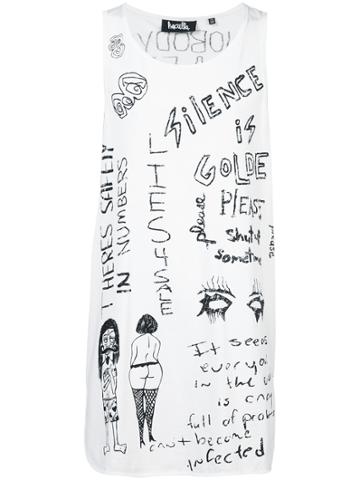 Haculla
NOBODY
SILENCE
iS
GOLDE
PLEAS
please
shutup
sometime
THERES SAFETY
IN NUMBERS
LIES 4 SALE
It seems
everyon
in the w
is crazy
full of prob
can't become
infected